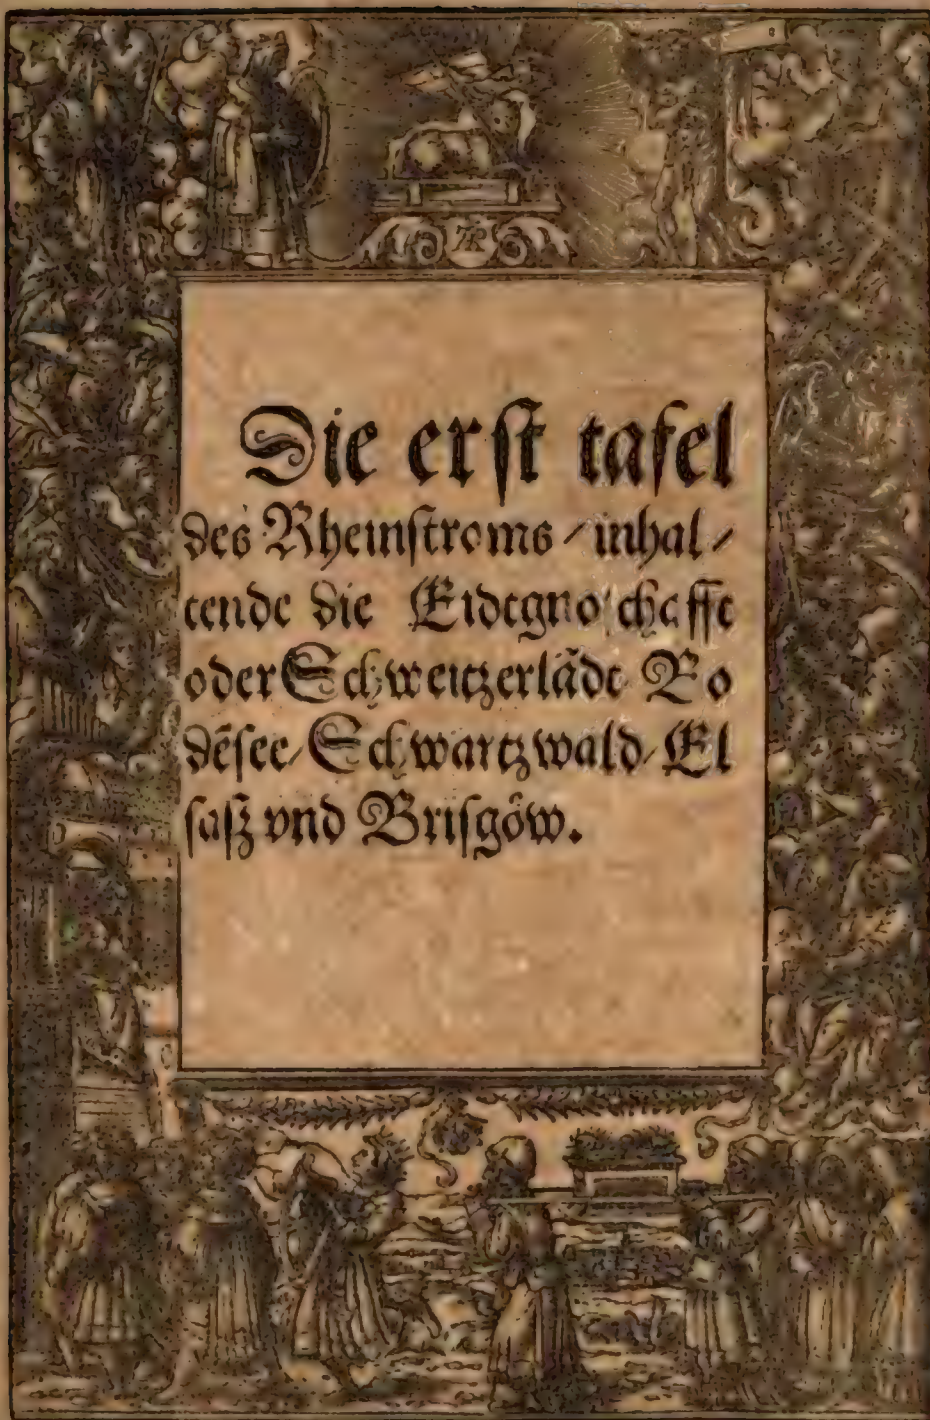 Die erst tafel
des Rheinstroms / inhal /
tende die Eidtgnoschafft
oder Schweitzerlãdt Bo
dẽsee / Schwartzwald / El
sasz vnd Brisgöw.